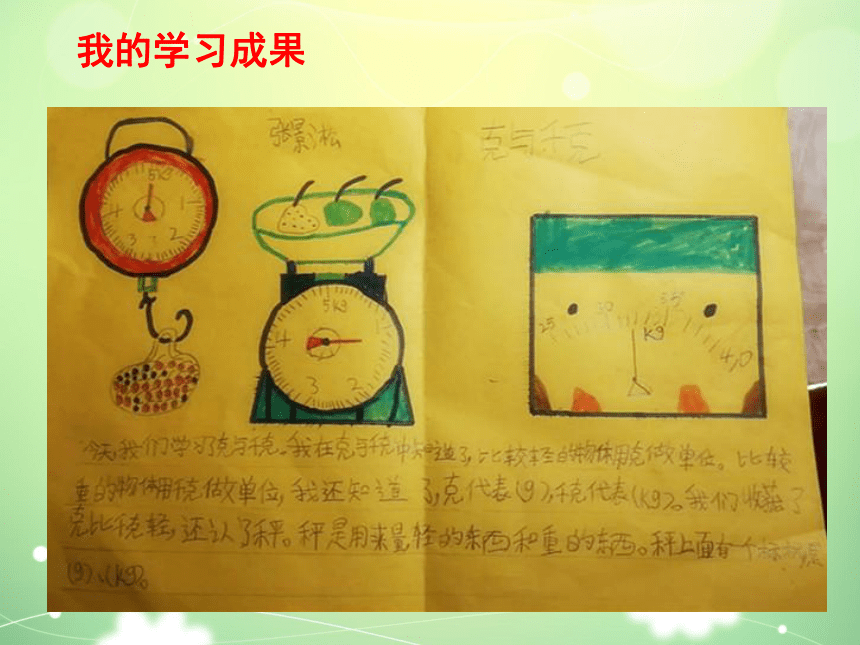 我的学习成果
张景淞
克与千克
5Kg
4
1
3
2
5Kg
4
1
3
2
25
30
35
4,0
Kg
今天,我们学习了克与千克。我在克与千克中知道了,比较轻的物体用克做单位。比较
重的物体用千克做单位,我还知道了,克代表(g),千克代表(Kg)。我们收获了
克比千克轻,还认了秤。秤是用来量轻的东西和重的东西。秤上面有个标
(g)、(Kg)。